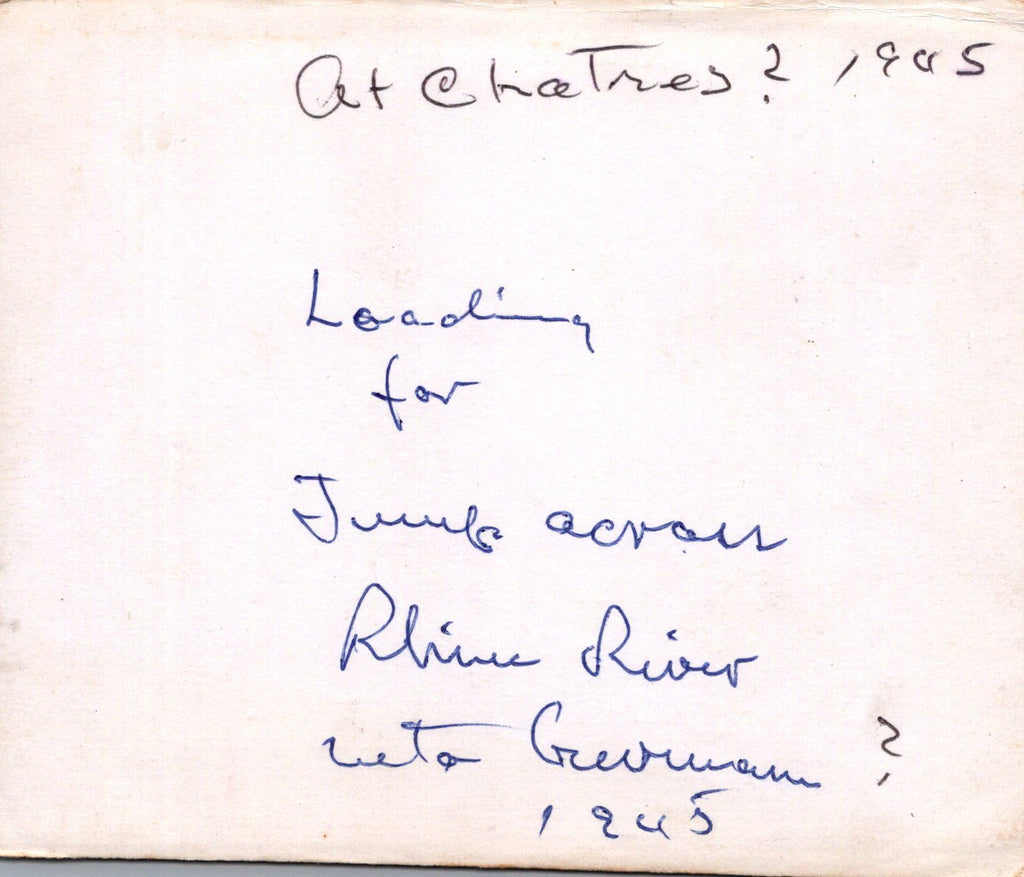 At Chatres? 1945
Loading
for
Jump across
Rhine River
into Germann ?
1945